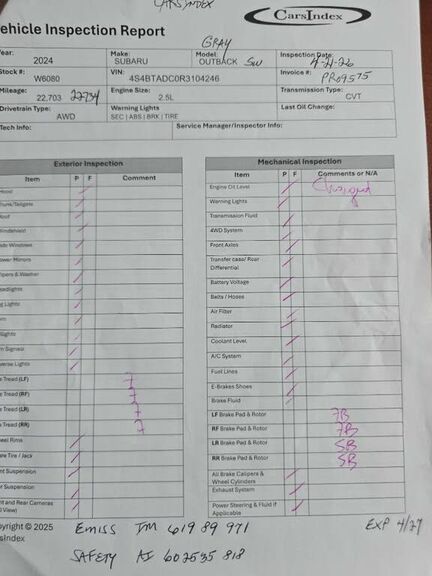 CARSINDEX
CarsIndex
ehicle Inspection Report
GRAY
Year: 2024 Make: SUBARU Model: OUTBACK SW Inspection Date: 4-21-26
Stock #: W6080 VIN: 4S4BTADC0R3104246 Invoice #: PR09575
Mileage: 22,703 22734 Engine Size: 2.5L Transmission Type: CVT
Drivetrain Type: AWD Warning Lights SEC | ABS | BRK | TIRE Last Oil Change:
Tech Info: Service Manager/Inspector Info:
Exterior Inspection
Item P F Comment
Hood
runk/Tailgate
Roof
Windshield
ide Windows
ower Mirrors
ipers & Washer
eadlights
g Lights
rn
llights
n Signasl
verse Lights
e Tread (LF) 7
e Tread (RF) 7
e Tread (LR) 7
e Tread (RR) 7
eel Rims
are Tire / Jack
nt Suspension
r Suspension
nt and Rear Cameras
l View)
Mechanical Inspection
Item P F Comments or N/A
Engine Oil Level Changed
Warning Lights
Transmission Fluid
4WD System
Front Axles
Transfer case/ Rear
Differential
Battery Voltage
Belts / Hoses
Air Filter
Radiator
Coolant Level
A/C System
Fuel Lines
E-Brakes Shoes
Brake Fluid
LF Brake Pad & Rotor 7B
RF Brake Pad & Rotor 7B
LR Brake Pad & Rotor 5B
RR Brake Pad & Rotor 5B
All Brake Calipers &
Wheel Cylinders
Exhaust System
Power Steering & Fluid if
Applicable
opyright © 2025
rsIndex
EMISS IM 619 89 971
EXP 4/27
SAFETY AI 602535 818